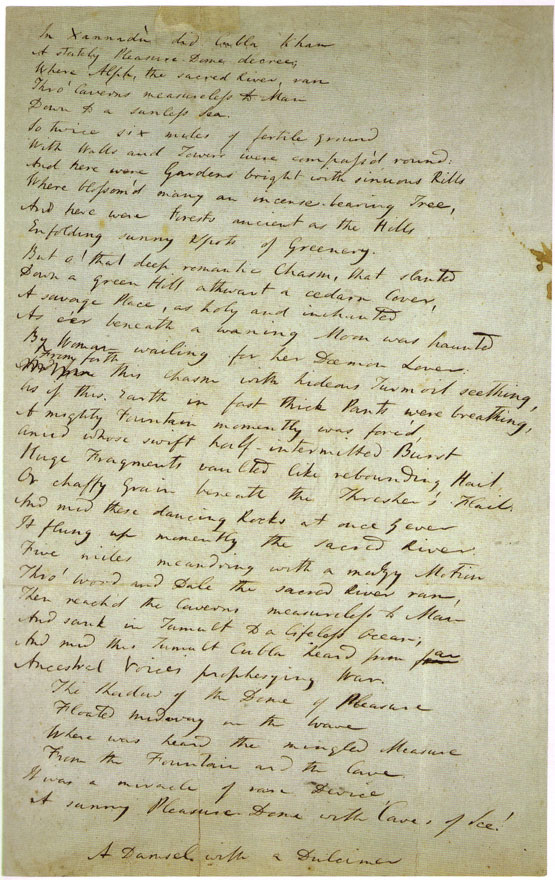 In Xannadù did Cubla Khan
A stately Pleasure-Dome decree;
Where Alph, the sacred River, ran
Thro' Caverns measureless to Man
Down to a sunless Sea.
So twice six miles of fertile ground
With Walls and Towers were compass'd round:
And here were Gardens bright with sinuous Rills
Where blossom'd many an incense-bearing Tree,
And here were Forests ancient as the Hills
Enfolding sunny Spots of Greenery.
But o! that deep romantic Chasm, that slanted
Down a green Hill athwart a cedarn Cover,
A savage Place, as holy and inchanted
As e'er beneath a waning Moon was haunted
By Woman wailing for her Dæmon Lover:
From forth this Chasm with hideous Turmoil seething,
As if this Earth in fast thick Pants were breathing,
A mighty Fountain momently was forc'd,
Amid whose swift half-intermitted Burst
Huge Fragments vaulted like rebounding Hail,
Or chaffy Grain beneath the Thresher's Flail.
And mid these dancing Rocks at once & ever
It flung up momently the sacred River.
Five miles meandring with a mazy Motion
Thro' Wood and Dale the sacred River ran,
Then reach'd the Caverns measureless to Man
And sank in Tumult to a lifeless Ocean;
And mid this Tumult Cubla heard from far
Ancestral Voices prophesying War.
The Shadow of the Dome of Pleasure
Floated midway on the Wave
Where was heard the mingled Measure
From the Fountain and the Cave.
It was a miracle of rare Device
A sunny Pleasure-Dome with Caves of Ice!
A Damsel with a Dulcimer